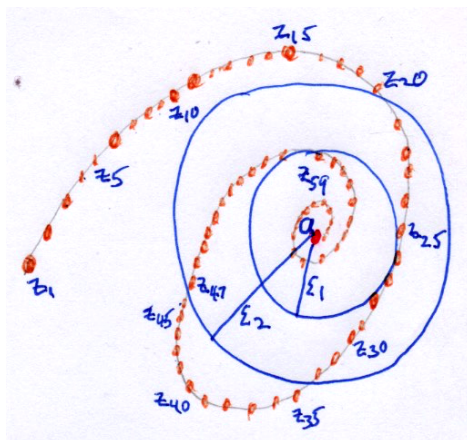 z₁₅
z₂₀
z₁₀
z₅
z₅₉
a
z₂₅
z₁
z₄₇
ε₁
z₄₅
ε₂
z₃₀
z₄₀
z₃₅